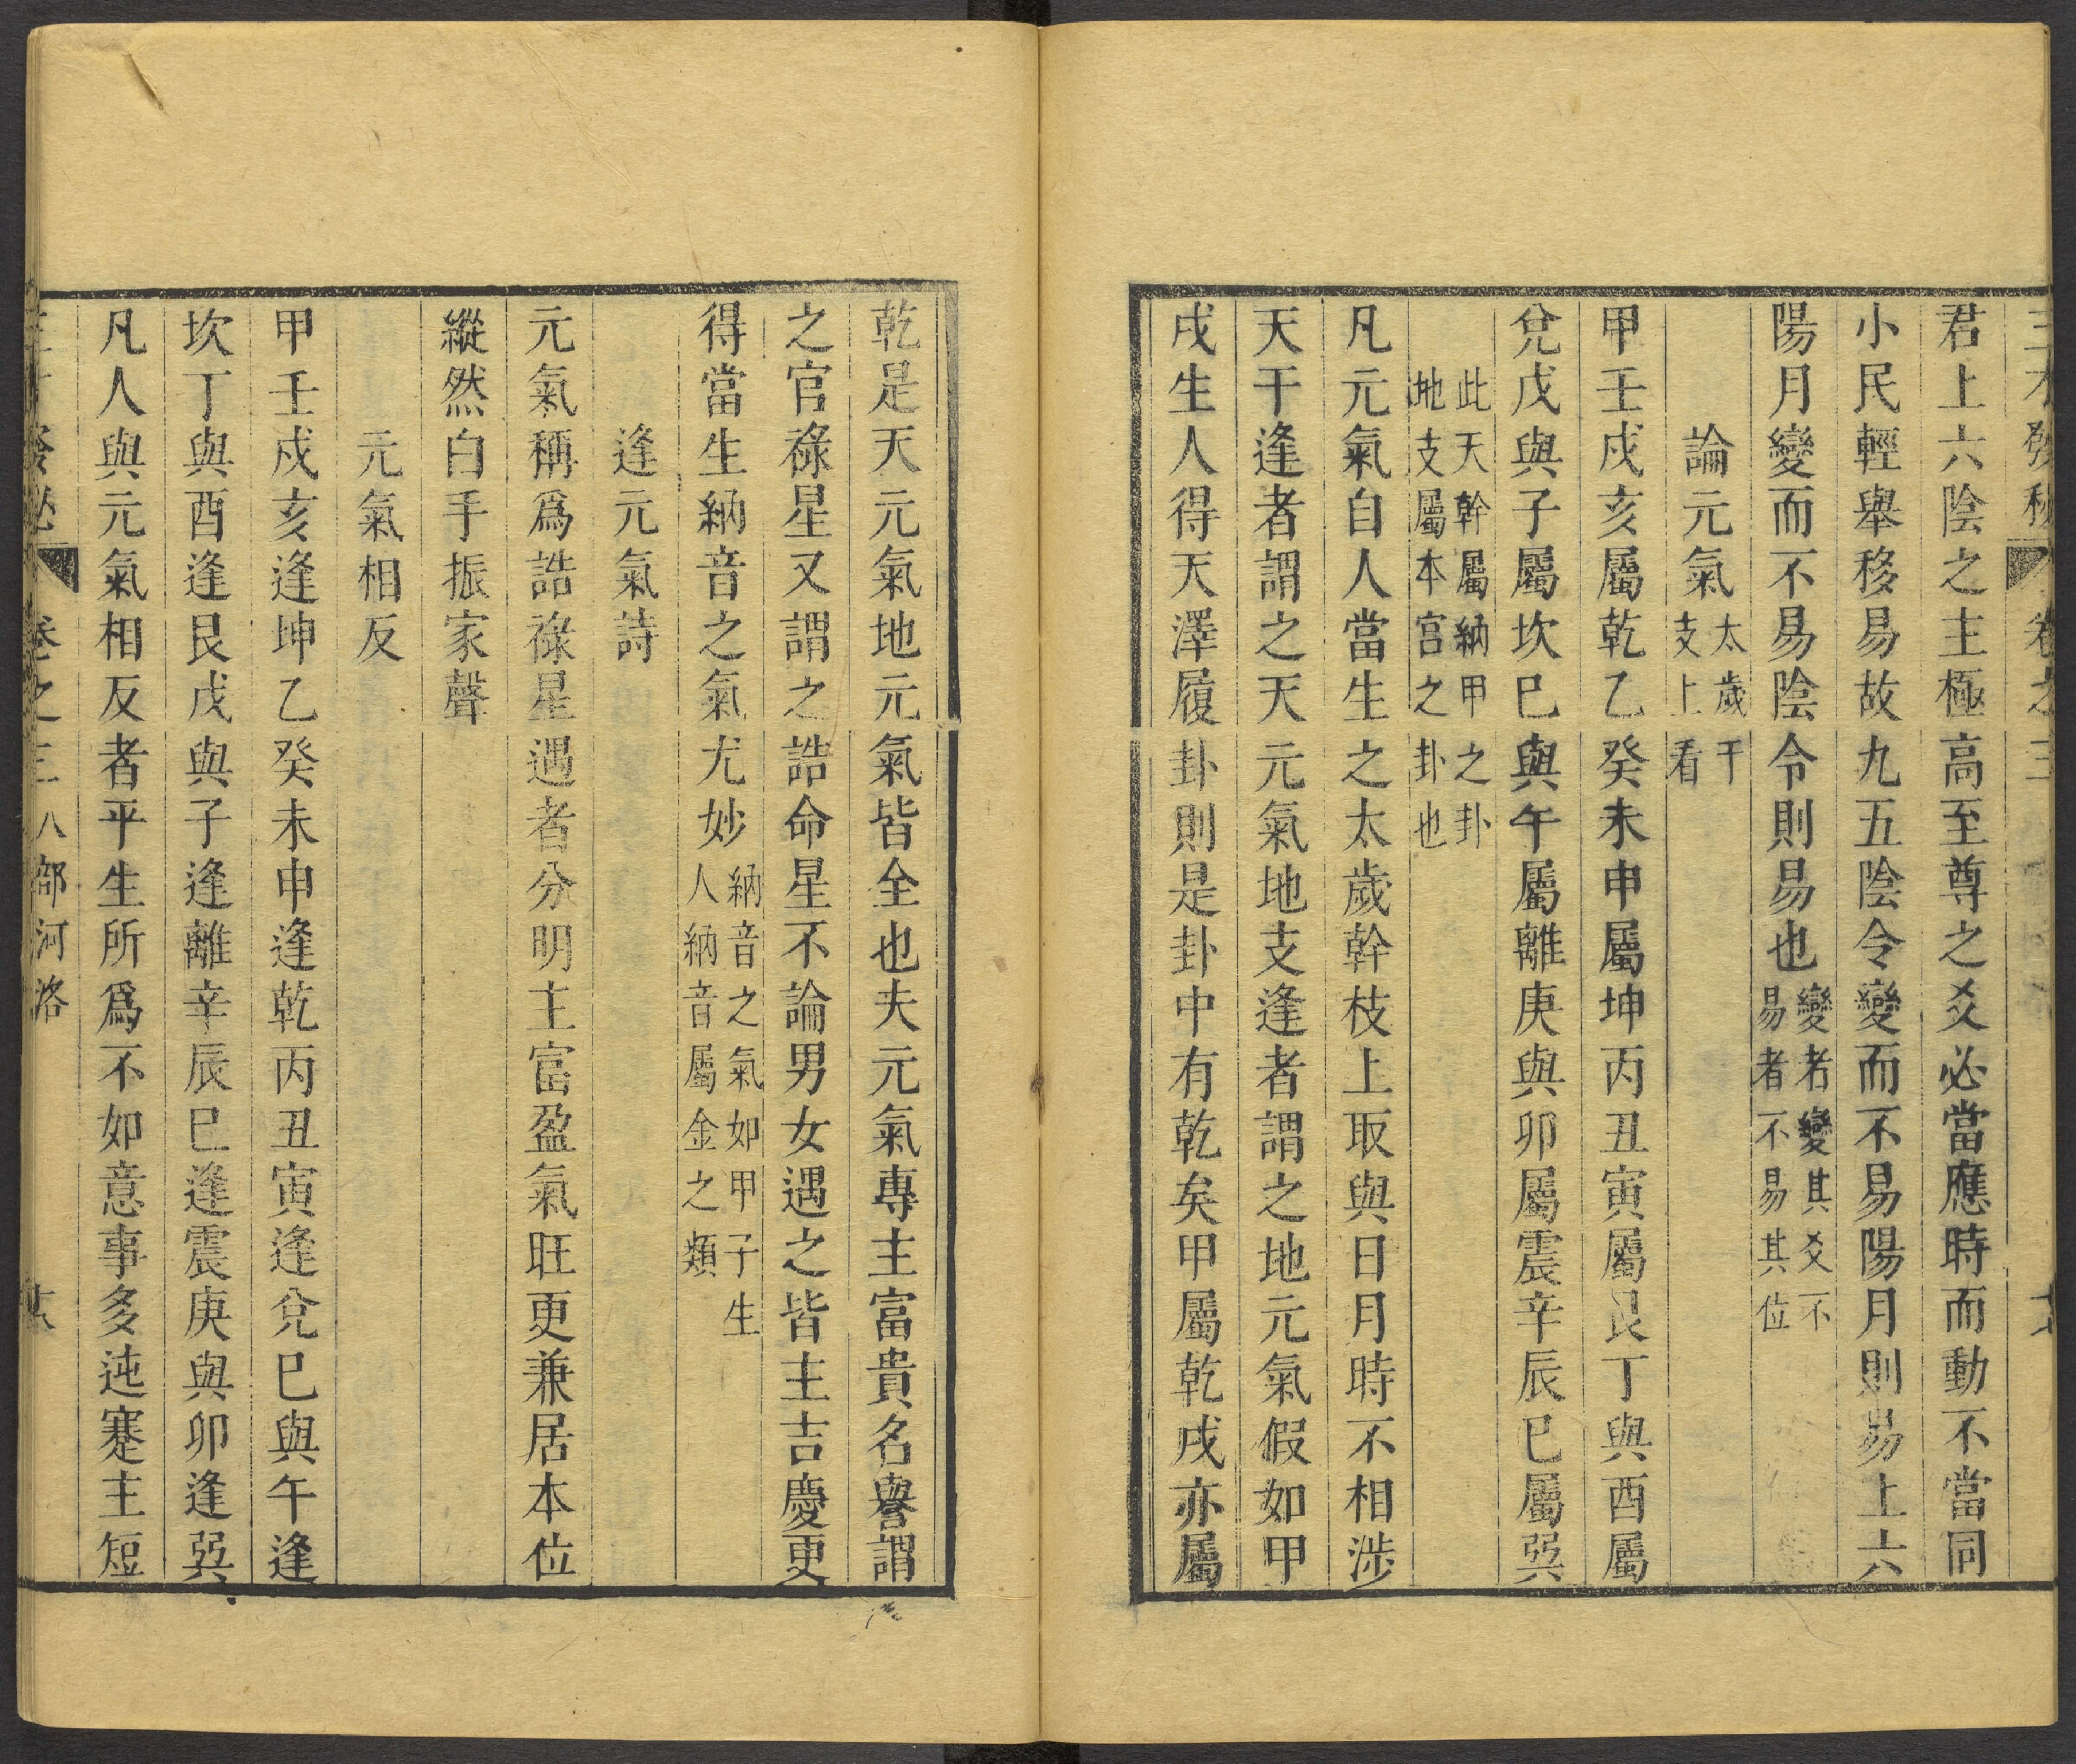 君上六陰之主極高至尊之爻必當應時而動不當同
小民輕舉移易故九五陰令變而不易陽月則易上六
陽月變而不易陰令則易也變者變其爻不
易者不易其位
論元氣太歲干
支上看
甲壬戍亥屬乾乙癸未申屬坤丙丑寅屬艮丁與酉屬
兌戊與子屬坎巳與午屬離庚與卯屬震辛辰巳屬巽
此天幹屬納甲之卦
地支屬本宮之卦也
凡元氣自人當生之太歲幹枝上取與日月時不相涉
天干逢者謂之天元氣地支逢者謂之地元氣假如甲
戌生人得天澤履卦則是卦中有乾矣甲屬乾戌亦屬
乾是天元氣地元氣皆全也夫元氣專主富貴名譽謂
之官祿星又謂之誥命星不論男女遇之皆主吉慶更
得當生納音之氣尤妙納音之氣如甲子生
人納音屬金之類
逢元氣詩
元氣稱爲誥祿星遇者分明主富盈氣旺更兼居本位
縱然白手振家聲
元氣相反
甲壬戍亥逢坤乙癸未申逢乾丙丑寅逢兌巳與午逢
坎丁與酉逢艮戊與子逢離辛辰巳逢震庚與卯逢巽
凡人與元氣相反者平生所爲不如意事多迍蹇主短
卷之三 八部河洛